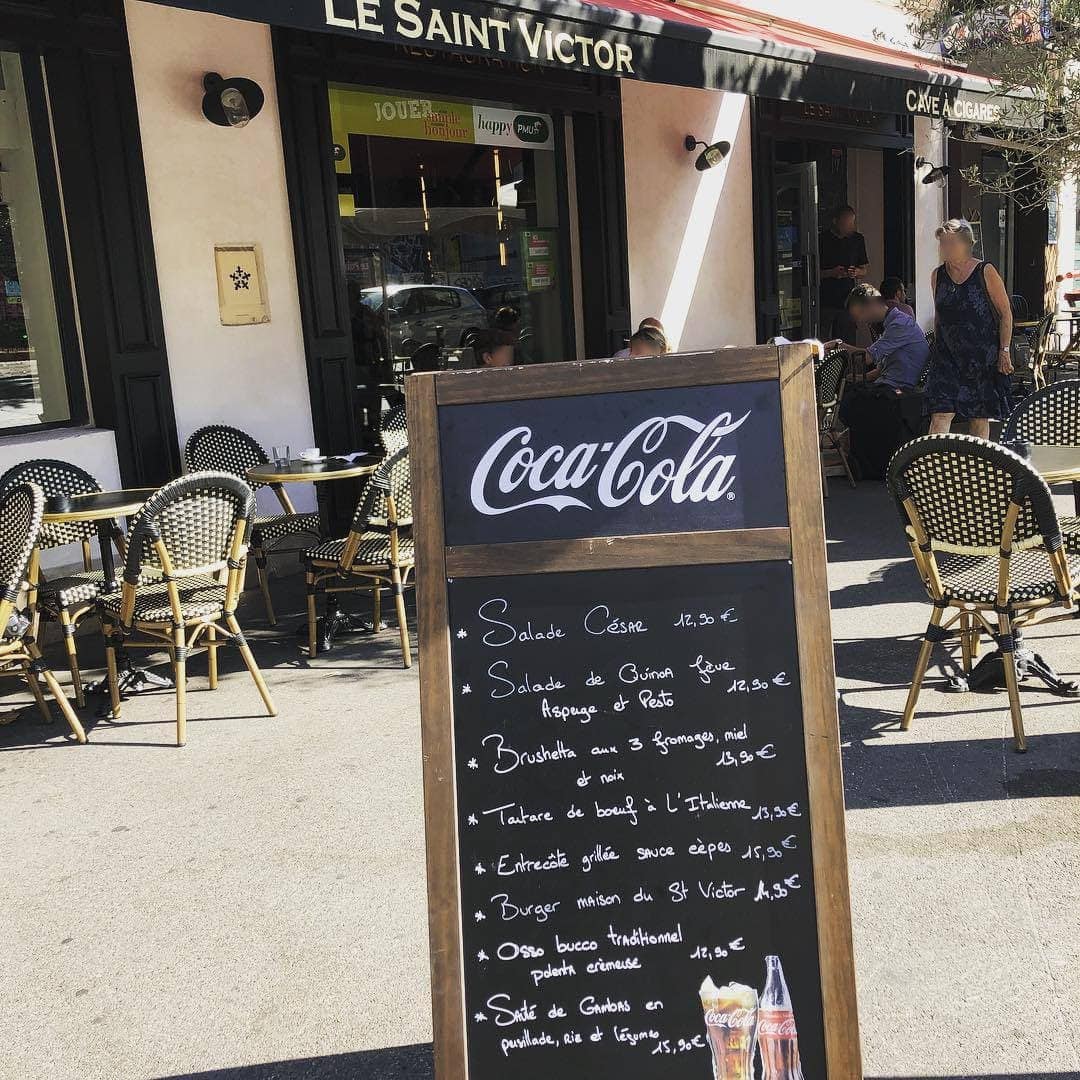 LE SAINT VICTOR
RESTAURATION
CAVE À CIGARES
JOUER
simple
bonjour
happy PMU
Coca-Cola
* Salade César 12,90€
* Salade de Quinoa fève
Asperge et Pesto 12,90€
* Brushetta aux 3 fromages, miel
et noix 13,90€
* Tartare de boeuf à L'Italienne 13,90€
* Entrecôte grillée sauce cèpes 15,90€
* Burger maison du St Victor 14,90€
* Osso bucco traditionnel
polenta crèmeuse 12,90€
* Sauté de Gambas en
persillade, riz et légumes 15,90€
Coca-Cola
Coca-Cola